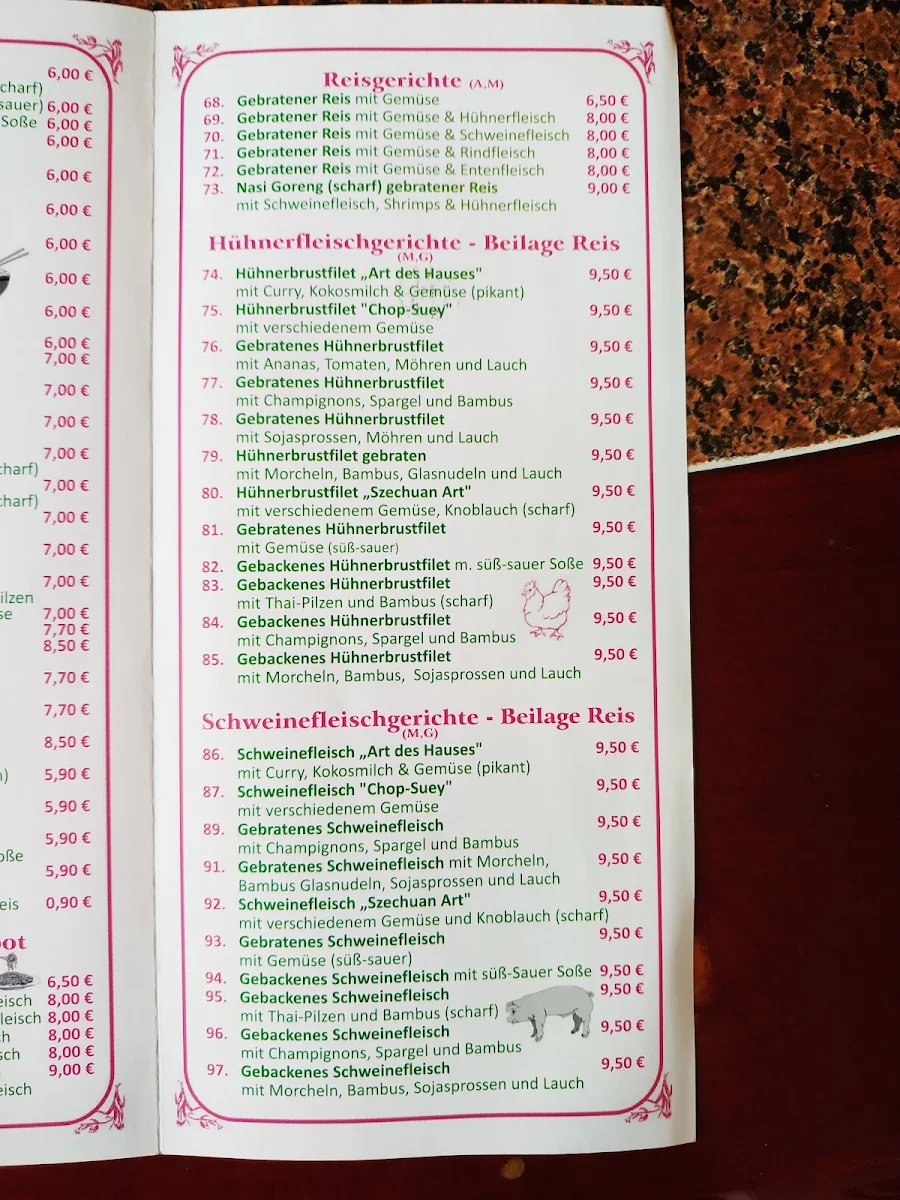 6,00 €
charf)
sauer) 6,00 €
Soße 6,00 €
6,00 €
6,00 €
6,00 €
6,00 €
6,00 €
6,00 €
6,00 €
7,00 €
7,00 €
7,00 €
7,00 €
charf)
7,00 €
charf)
7,00 €
7,00 €
7,00 €
ilzen
se 7,00 €
7,70 €
8,50 €
7,70 €
7,70 €
8,50 €
) 5,90 €
5,90 €
5,90 €
oße
5,90 €
eis 0,90 €
ot
6,50 €
eisch 8,00 €
leisch 8,00 €
h 8,00 €
sch 8,00 €
9,00 €
eisch
Reisgerichte (A,M)
68. Gebratener Reis mit Gemüse 6,50 €
69. Gebratener Reis mit Gemüse & Hühnerfleisch 8,00 €
70. Gebratener Reis mit Gemüse & Schweinefleisch 8,00 €
71. Gebratener Reis mit Gemüse & Rindfleisch 8,00 €
72. Gebratener Reis mit Gemüse & Entenfleisch 8,00 €
73. Nasi Goreng (scharf) gebratener Reis 9,00 €
mit Schweinefleisch, Shrimps & Hühnerfleisch
Hühnerfleischgerichte - Beilage Reis
(M,G)
74. Hühnerbrustfilet „Art des Hauses" 9,50 €
mit Curry, Kokosmilch & Gemüse (pikant)
75. Hühnerbrustfilet "Chop-Suey" 9,50 €
mit verschiedenem Gemüse
76. Gebratenes Hühnerbrustfilet 9,50 €
mit Ananas, Tomaten, Möhren und Lauch
77. Gebratenes Hühnerbrustfilet 9,50 €
mit Champignons, Spargel und Bambus
78. Gebratenes Hühnerbrustfilet 9,50 €
mit Sojasprossen, Möhren und Lauch
79. Hühnerbrustfilet gebraten 9,50 €
mit Morcheln, Bambus, Glasnudeln und Lauch
80. Hühnerbrustfilet „Szechuan Art" 9,50 €
mit verschiedenem Gemüse, Knoblauch (scharf)
81. Gebratenes Hühnerbrustfilet 9,50 €
mit Gemüse (süß-sauer)
82. Gebackenes Hühnerbrustfilet m. süß-sauer Soße 9,50 €
83. Gebackenes Hühnerbrustfilet 9,50 €
mit Thai-Pilzen und Bambus (scharf)
84. Gebackenes Hühnerbrustfilet 9,50 €
mit Champignons, Spargel und Bambus
85. Gebackenes Hühnerbrustfilet 9,50 €
mit Morcheln, Bambus, Sojasprossen und Lauch
Schweinefleischgerichte - Beilage Reis
(M,G)
86. Schweinefleisch „Art des Hauses" 9,50 €
mit Curry, Kokosmilch & Gemüse (pikant)
87. Schweinefleisch "Chop-Suey" 9,50 €
mit verschiedenem Gemüse
89. Gebratenes Schweinefleisch 9,50 €
mit Champignons, Spargel und Bambus
91. Gebratenes Schweinefleisch mit Morcheln, 9,50 €
Bambus Glasnudeln, Sojasprossen und Lauch
92. Schweinefleisch „Szechuan Art" 9,50 €
mit verschiedenem Gemüse und Knoblauch (scharf)
93. Gebratenes Schweinefleisch 9,50 €
mit Gemüse (süß-sauer)
94. Gebackenes Schweinefleisch mit süß-Sauer Soße 9,50 €
95. Gebackenes Schweinefleisch 9,50 €
mit Thai-Pilzen und Bambus (scharf)
96. Gebackenes Schweinefleisch 9,50 €
mit Champignons, Spargel und Bambus
97. Gebackenes Schweinefleisch 9,50 €
mit Morcheln, Bambus, Sojasprossen und Lauch